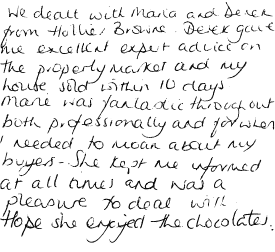 We dealt with Maria and Derek
from Hollier Browne. Derek gave
me excellent expert advice on
the property market and my
house sold within 10 days
Marie was fantastic throughout
both professionally and for when
I needed to moan about my
buyers - She kept me informed
at all times and was a
pleasure to deal with
Hope she enjoyed the chocolates.